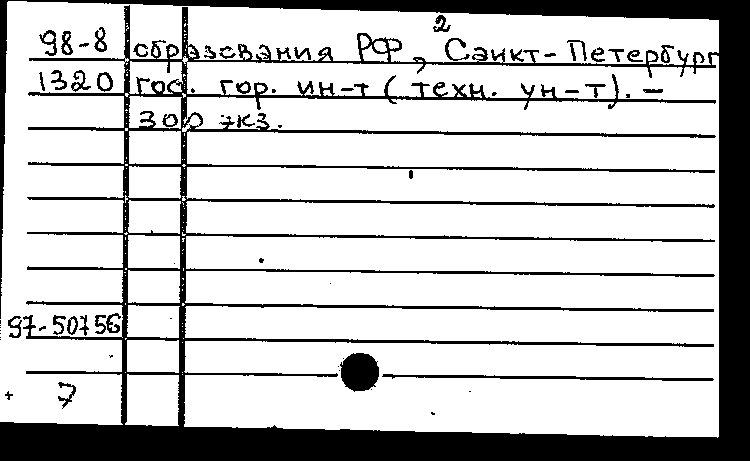 98-8 образования РФ, 2 Санкт-Петербург
1320 гос. гор. ин-т (техн. ун-т). –
300 экз.
97-50756
+ 7